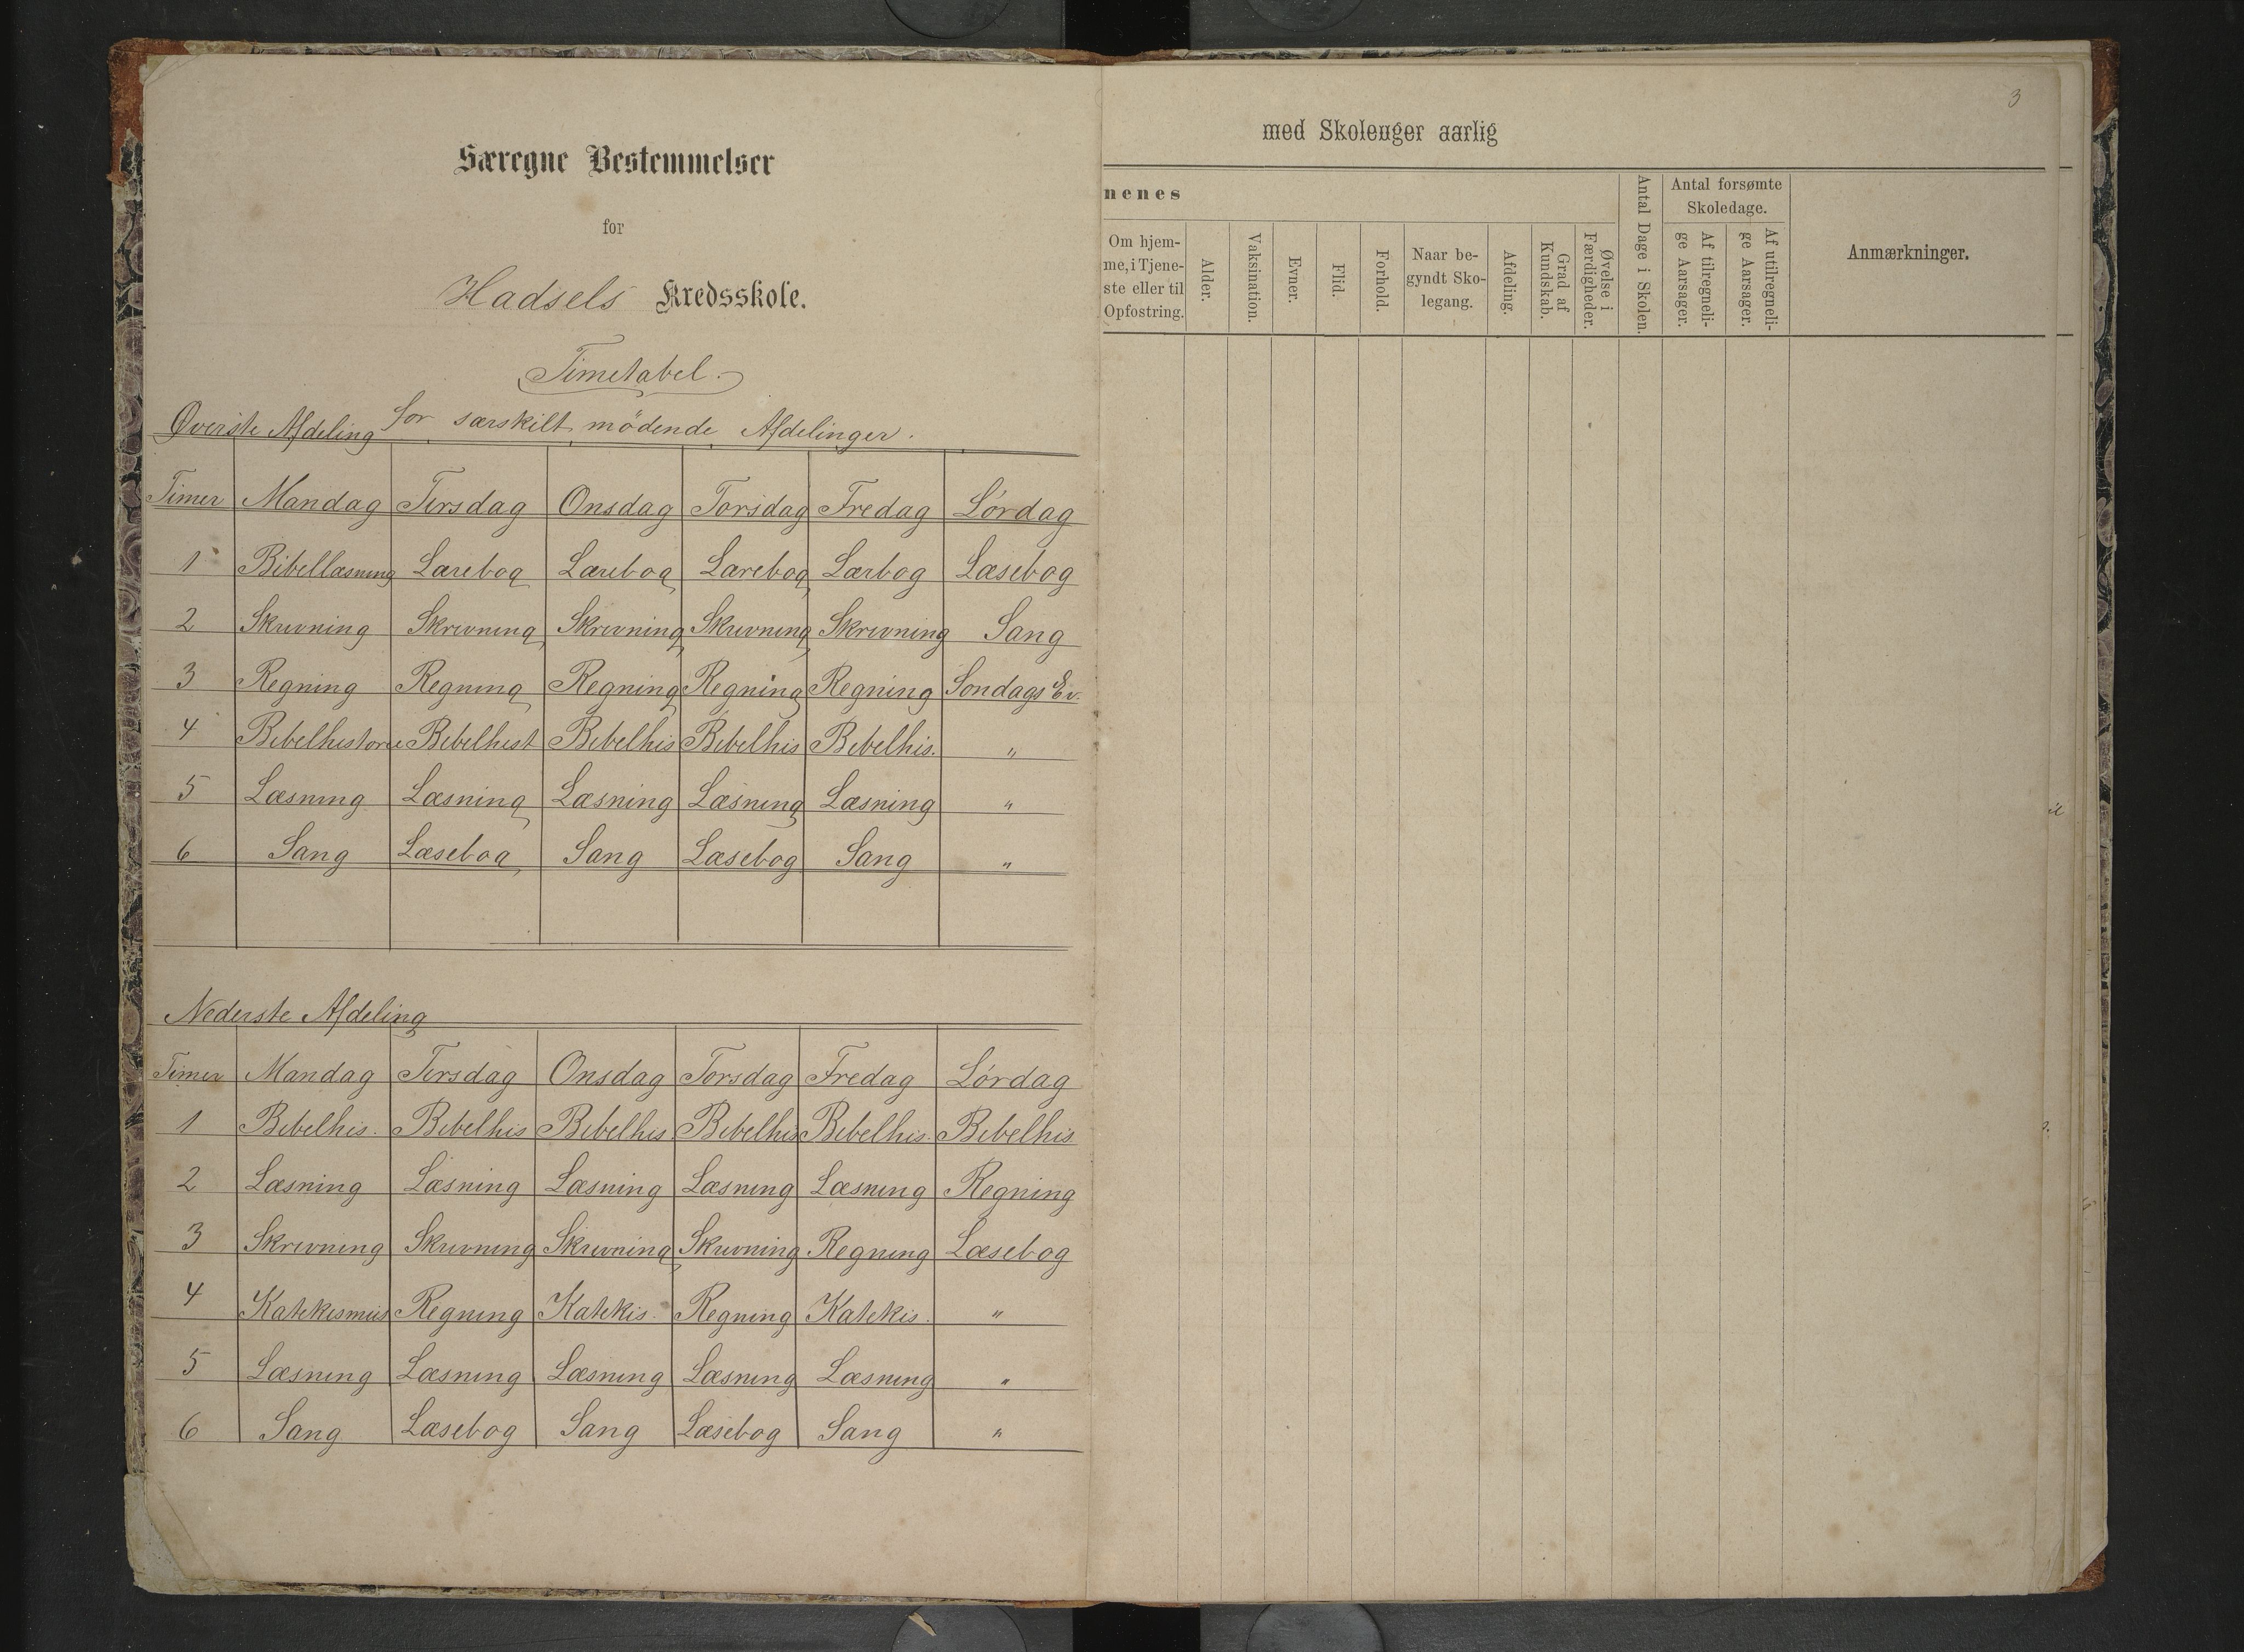 Særegne Bestemmelser
for
Hadsels Kredsskole.
Timetabel.
for særskilt mødende Afdelinger.
Øverste Afdeling
Timer Mandag Tirsdag Onsdag Torsdag Fredag Lördag
1 Bibellæsning Lærebog Lærebog Lærebog Lærbog Læsebog
2 Skrivning Skrivning Skrivning Skrivning Skrivning Sang
3 Regning Regning Regning Regning Regning Sondags Ev.
4 Bibelhistorie Bibelhist Bibelhis Bibelhis Bibelhis. "
5 Læsning Læsning Læsning Læsning Læsning "
6 Sang Læsebog Sang Læsebog Sang "
Nederste Afdeling
Timer Mandag Tirsdag Onsdag Torsdag Fredag Lördag
1 Bibelhis. Bibelhis Bibelhis Bibelhis Bibelhis. Bibelhis
2 Læsning Læsning Læsning Læsning Læsning Regning
3 Skrivning Skrivning Skrivning Skrivning Regning Læsebog
4 Katekismus Regning Katekis. Regning Katekis. "
5 Læsning Læsning Læsning Læsning Læsning "
6 Sang Læsebog Sang Læsebog Sang "
3
med Skoleuger aarlig
nenes
Om hjem-
me, i Tjene-
ste eller til
Opfostring.
Alder.
Vaksination.
Evner.
Flid.
Forhold.
Naar be-
gyndt Sko-
legang.
Afdeling.
Grad af
Kundskab.
Øvelse i
Færdigheder.
Antal Dage i Skolen.
Antal forsømte
Skoledage.
Af tilregneli-
ge Aarsager.
Af utilregneli-
ge Aarsager.
Anmærkninger.